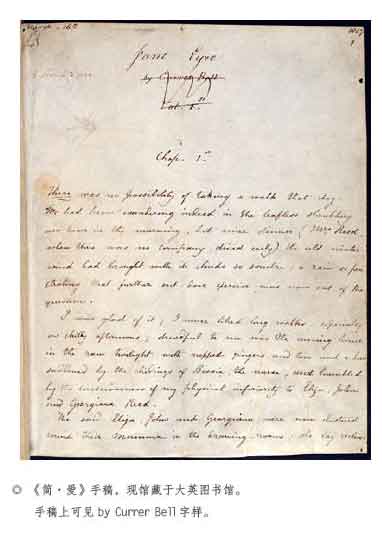 March 16th
1847
1
Jane Eyre
by Currer Bell
Vol. 1st
Chap. 1st
There was no possibility of taking a walk that day.
We had been wandering indeed in the leafless shrubbery
an hour in the morning, but since dinner (Mrs Reed,
when there was no company, dined early) the cold winter
wind had brought with it clouds so sombre, a rain so pene-
trating that further out-door exercise was now out of the
question.
I was glad of it; I never liked long walks, especially
on chilly afternoons; dreadful to me was the coming home
in the raw twilight with nipped fingers and toes and a heart
saddened by the chidings of Bessie, the nurse, and humbled
by the consciousness of my physical inferiority to Eliza, John
and Georgiana Reed.
The said Eliza, John and Georgiana were now clustered
round their mamma in the drawing-room: she lay
◎ 《简·爱》手稿，现馆藏于大英图书馆。
手稿上可见 by Currer Bell 字样。